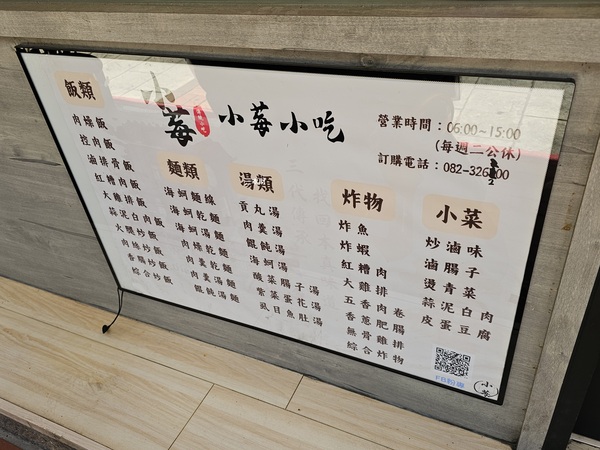 小莓
小莓小吃
營業時間：06:00~15:00
(每週二公休)
訂購電話：082-326
飯類
肉燥飯
控肉飯
滷排骨飯
紅糟肉飯
大雞排飯
蒜泥白肉飯
火腿炒飯
肉絲炒飯
香腸炒飯
綜合炒飯
麵類
海蚵麵線
海蚵乾麵
海蚵湯麵
肉燥乾麵
肉羹乾麵
肉羹湯麵
餛飩湯麵
湯類
貢丸湯
肉羹湯
餛飩湯
海蚵湯
酸菜腸子湯
紫菜蛋花湯
虱目魚肚湯
炸物
炸魚
炸蝦
紅糟肉
大雞排
五香肉卷
香蔥肥腸
無骨雞排
綜合炸物
小菜
炒滷味
滷腸子
燙青菜
蒜泥白肉
皮蛋豆腐
FB粉專
小莓